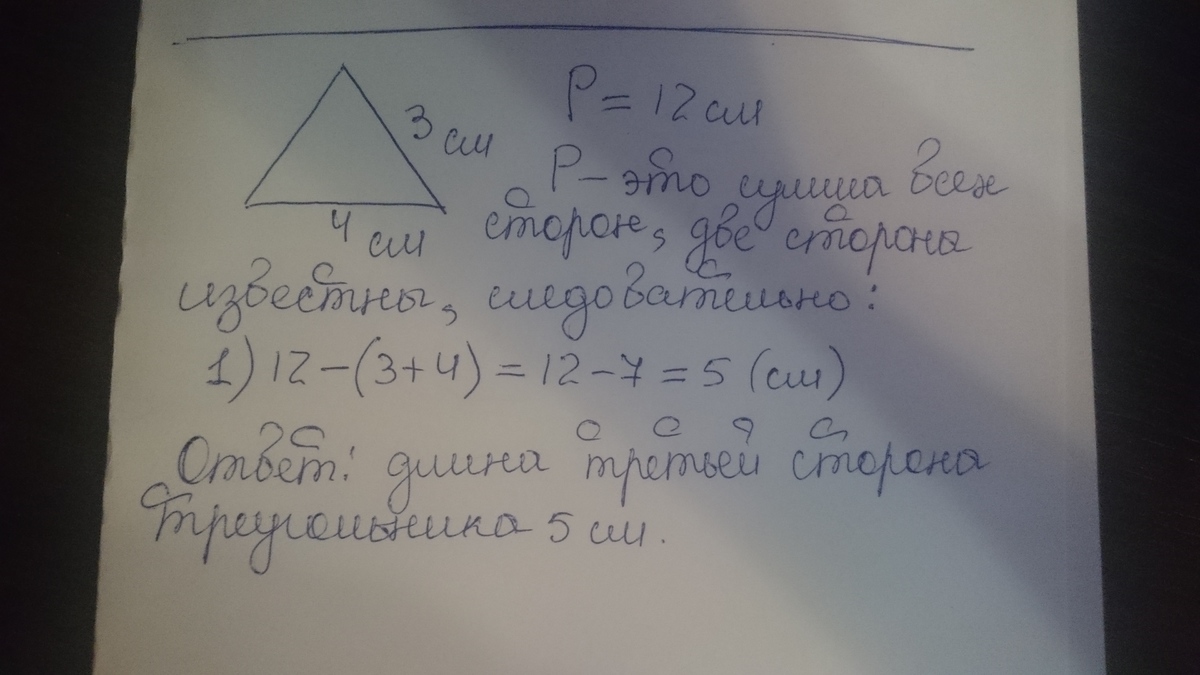 P = 12 см
3 см
P – это сумма всех
4 см
сторон, две стороны
известны, следовательно:
1) 12 – (3+4) = 12 – 7 = 5 (см)
Ответ: длина третьей стороны
треугольника 5 см.